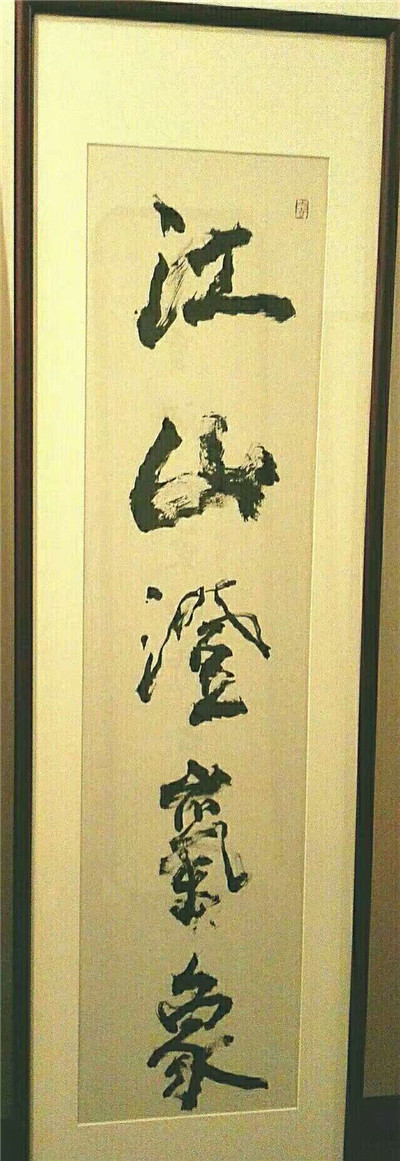 江山澄氣象